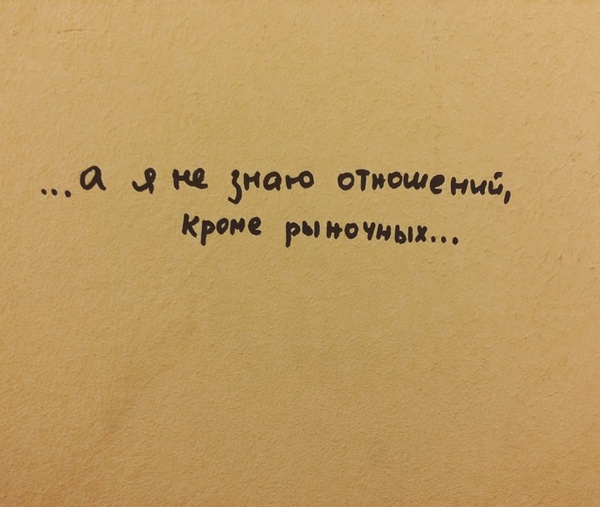 ...а я не знаю отношений,
кроме рыночных...